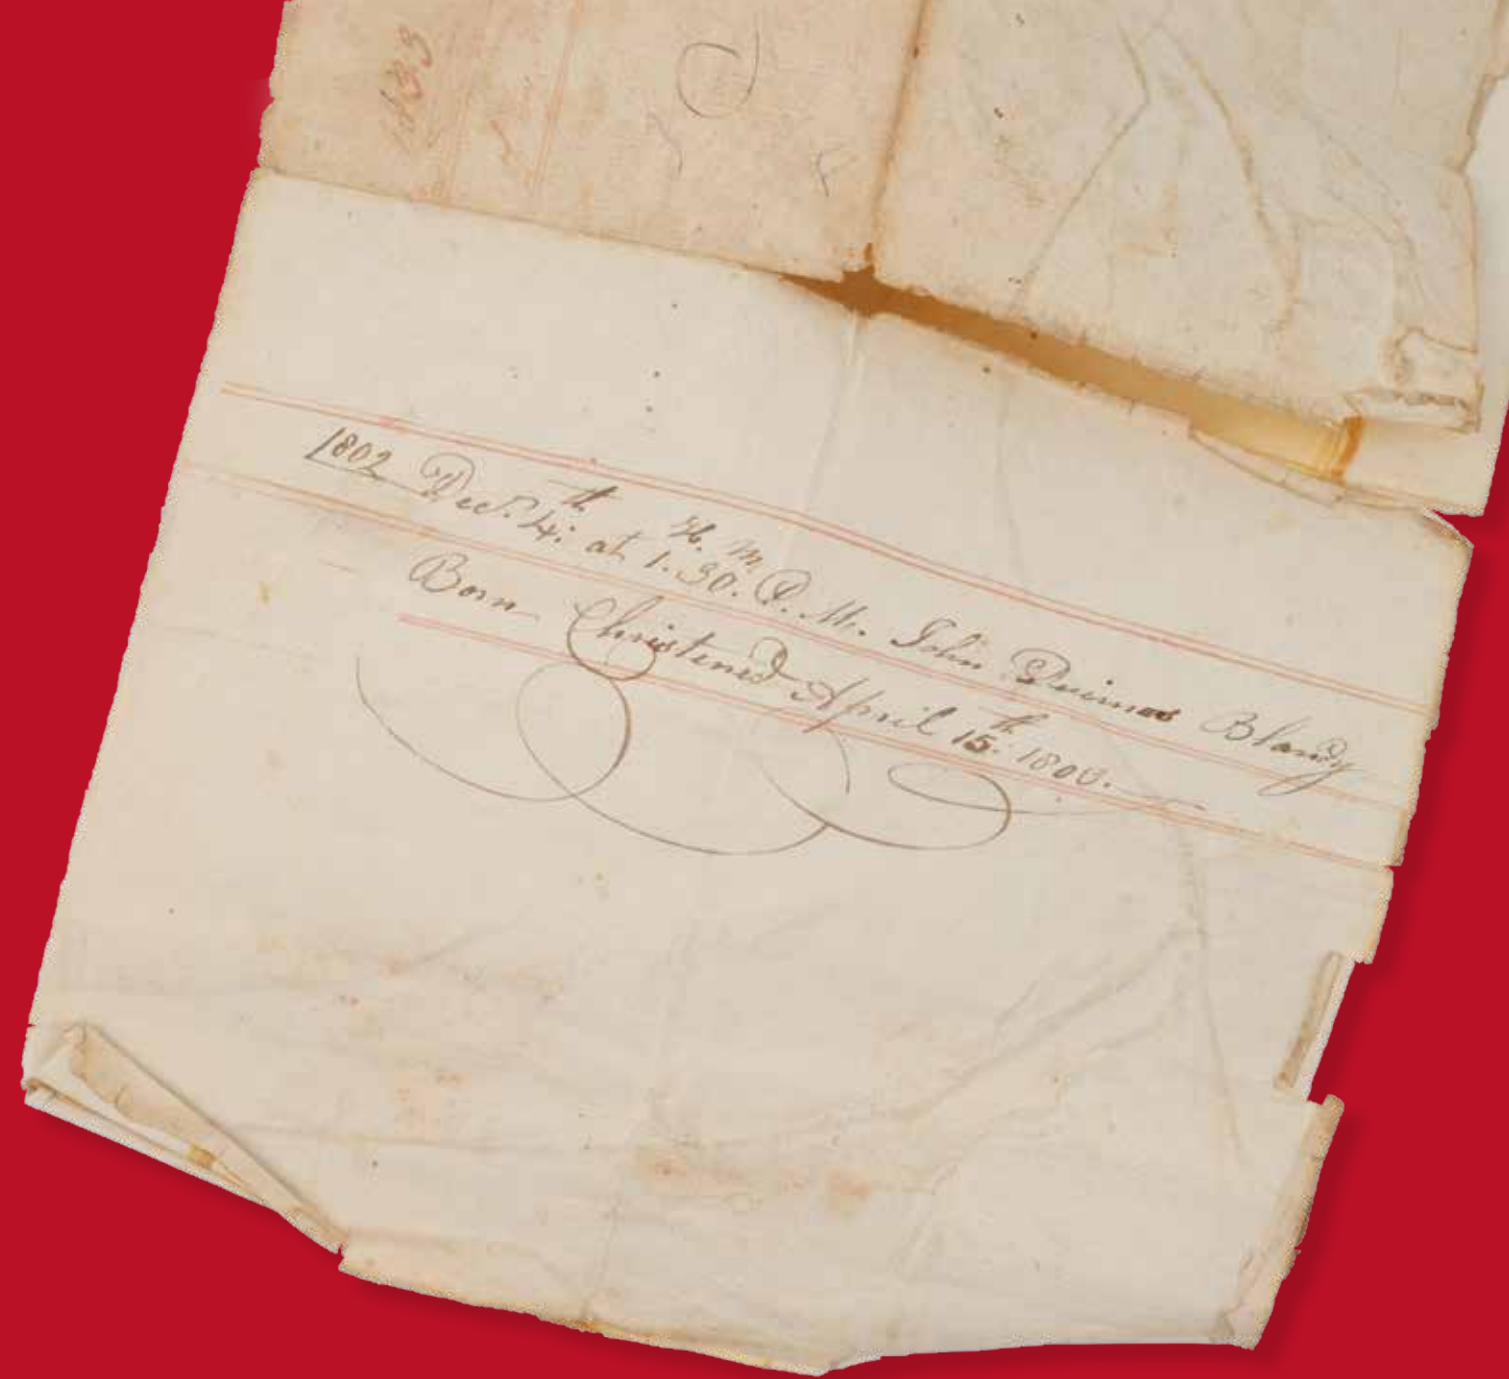 1802 Decr. 4th: at 1.H. 30.M. P.M. John Blandy
Born Christened April 15th: